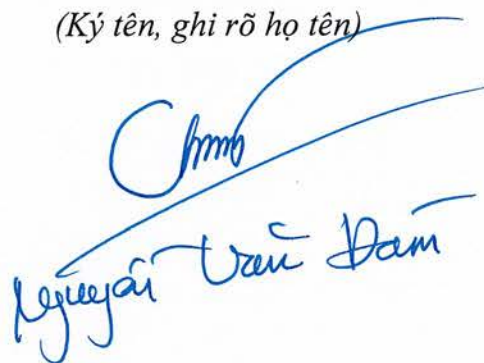 (Ký tên, ghi rõ họ tên)
Nguyễn Văn